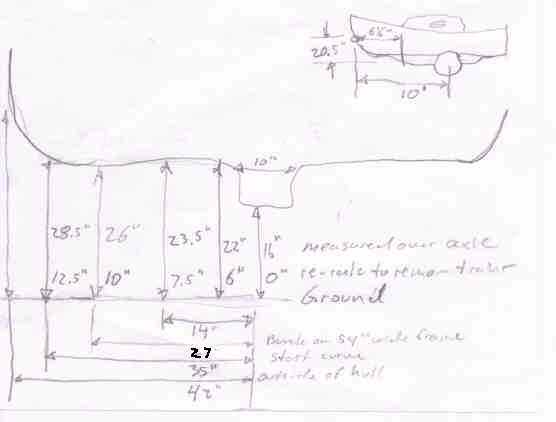 6½"
20.5"
10"
10"
28.5" 26" 23.5" 22" 16" measured over axle
12.5" 10" 7.5" 6" 0" re-scale to remove trailer
Ground
14"
Bunk on 54" wide frame
27
start curve
35"
outside of hull
42"